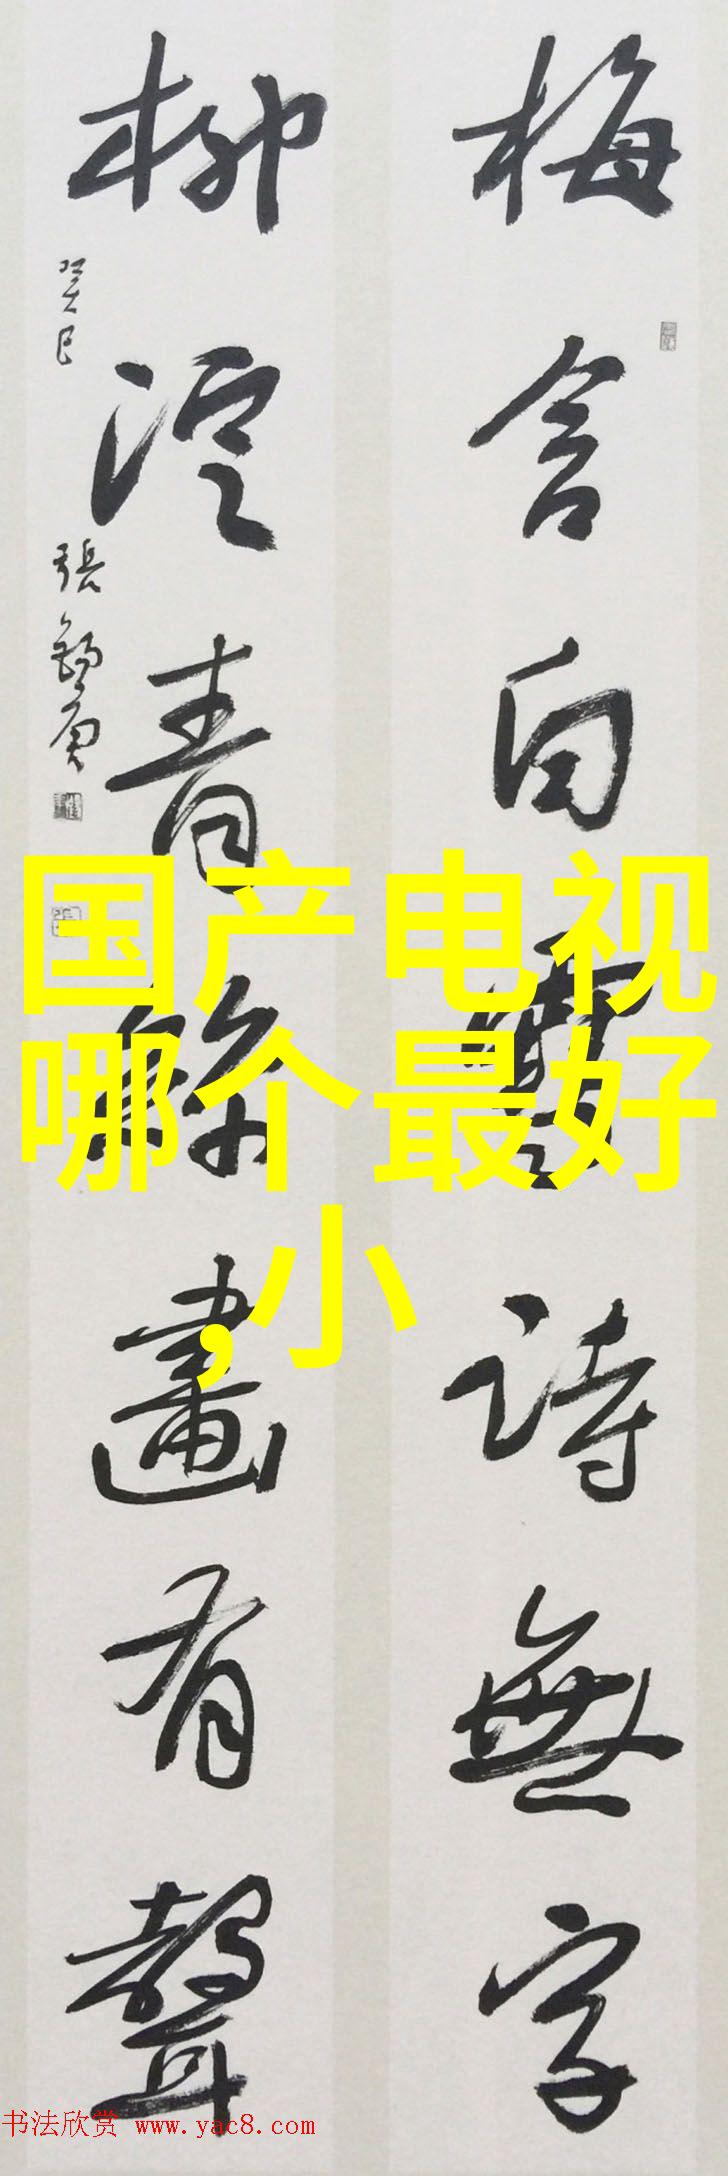 梅含白雪詩無字
柳浥青絲畫有聲
癸巳
張錫庚
国产电视
哪个最好
,小
书法欣赏 www.yac8.com